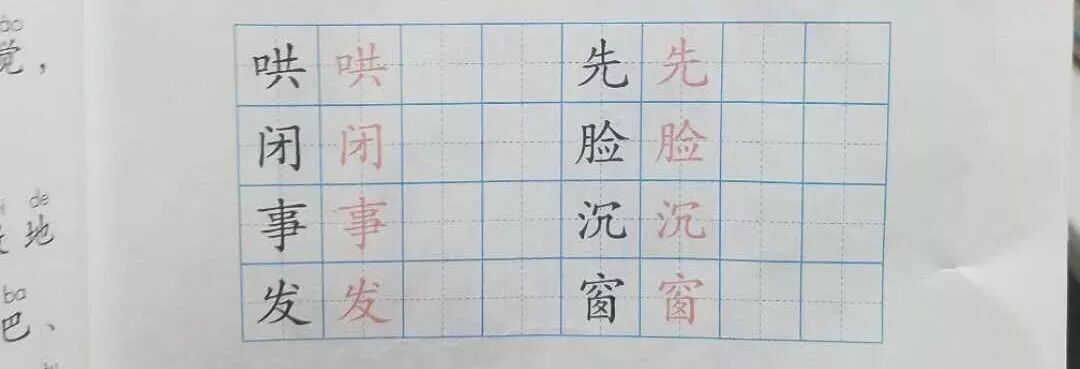 觉，
哄 哄 先 先
闭 闭 脸 脸
事 事 沉 沉
de
地
发 发 窗 窗
ba
巴、